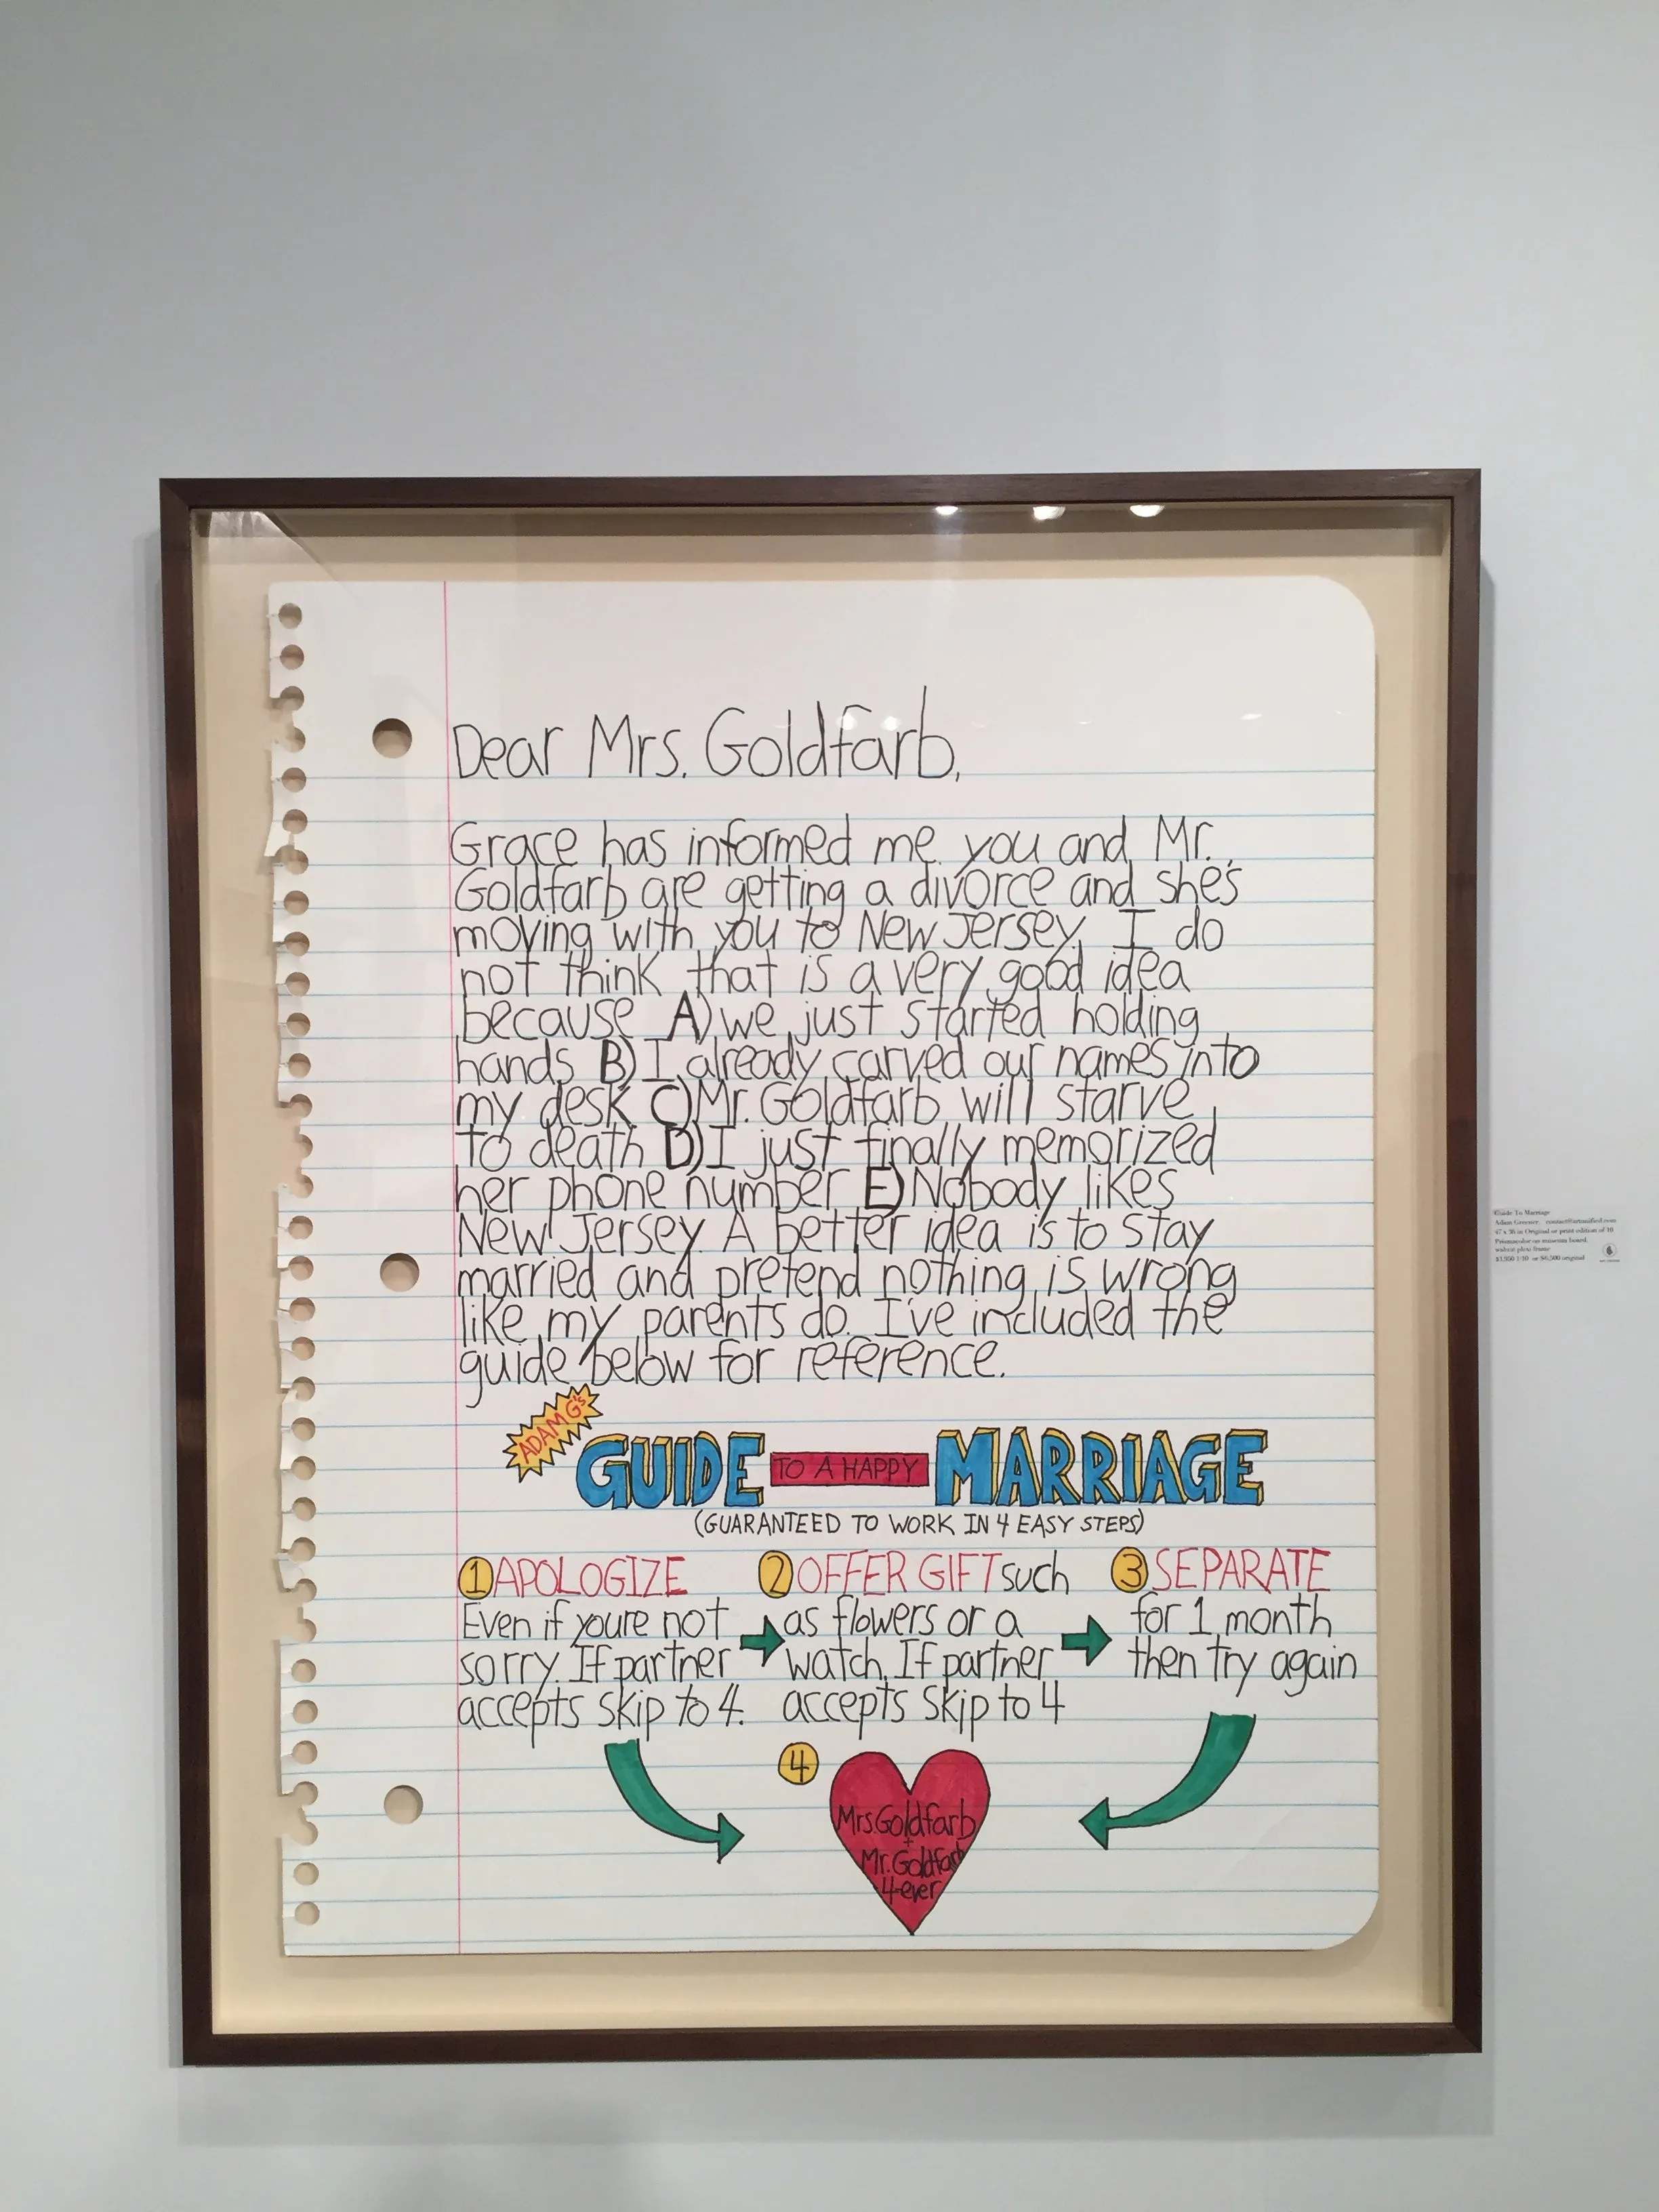 Dear Mrs. Goldfarb,
Grace has informed me you and Mr.
Goldfarb are getting a divorce and she's
moving with you to New Jersey. I do
not think that is a very good idea
because A) we just started holding
hands B) I already carved our names into
my desk C) Mr. Goldfarb will starve
to death D) I just finally memorized
her phone number E) Nobody likes
New Jersey. A better idea is to stay
married and pretend nothing is wrong
like my parents do. I've included the
guide below for reference.
ADAM G's
GUIDE TO A HAPPY MARRIAGE
(GUARANTEED TO WORK IN 4 EASY STEPS)
1 APOLOGIZE
Even if youre not
sorry. If partner
accepts skip to 4.
2 OFFER GIFT such
as flowers or a
watch. If partner
accepts skip to 4
3 SEPARATE
for 1 month
then try again
4
Mrs. Goldfarb
+
Mr. Goldfarb
4-ever
Guide To Marriage
Adam Greener, contact@artunified.com
47 x 36 in Original or print edition of 10
Prismacolor on museum board
walnut plexi frame
$3,950 1/10 or $6,500 original